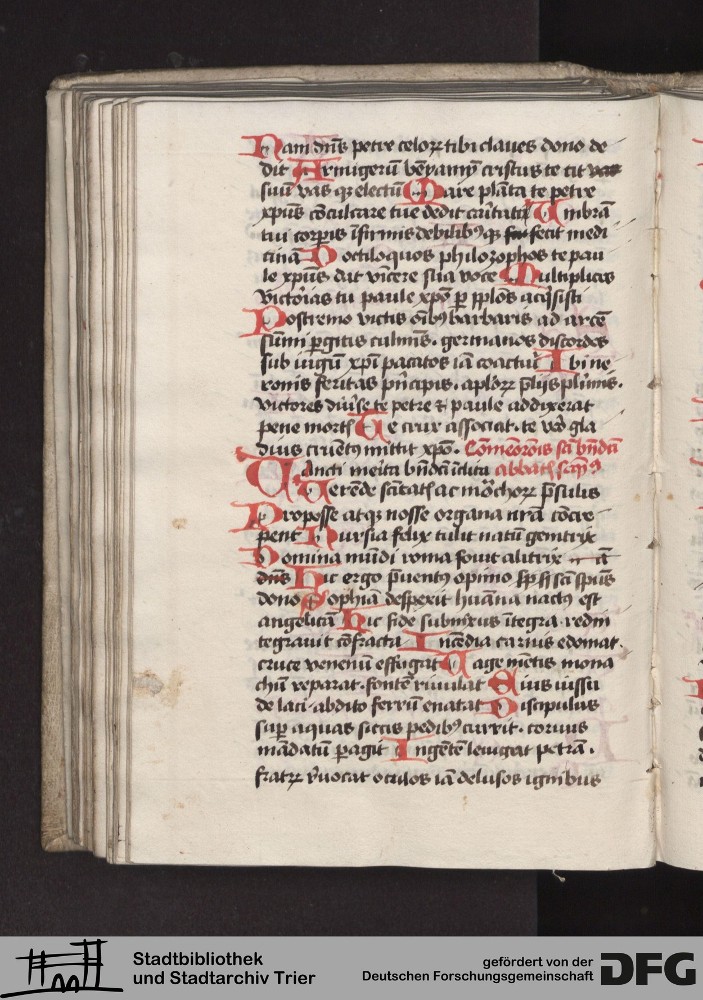 Nam dn̄s petre celoꝝ tibi claues dono de
dit Armigerū beniamyn cristus te cit vas
suū vas qꝫ electū Mare plāta te petre
xpūs cōculcare tue dedit cūtatꝭ Vmbrā
tui corpꝑis īfirmis debilibꝰqꝫ fecit medi
cinā Doctiloquos philozophos te pau
le xpūs dat vīcere sua voce Multiplices
victorias tu paule xpō ꝑ pplōs acq̄sisti
Postremo victis oībꝰ barbaris ad arcē
sūmi ꝑgitis culmīs . germanos discordes
sub iugū xpī pacatos iā coactuī Ibi ne
ronis feritas pͥncipis . aplōꝝ p̄lijs plͥimis .
victores diuͥse te petre ⁊ paule addixerat
pene mortꝭ Te crux associat . te vͦo gla
diuis cruētꝰ mittit xpō . Cōmēorōis scī bn̄dcī
Sancti merita bn̄dcī īclita abbatꝭ
Uerēde scītatꝭ ac mōchoꝝ p̄sulis
Proposse atqꝫ nosse organa nr̄a cōcre
pent Nursia felix tulit natū genitrix
Domina mūdi roma fouit alitrix
dn̄s Hic ergo p̄uentꝰ opimo scī spūs
dono Sophiā despexit huāna nactꝰ est
angelicā Hic fide submixus ītegra redin
tegrauit cōfracta Incēdia carnis edomat .
cruce venenū effugat Vage mētis mona
chū reparat . fontē riuulat Eius iussu
de laci abdito ferrū enatat Discipulus
suꝑ aquas siccis pedibꝰ currit . coruus
mādatū ꝑagit Ingētē leuigat petrā .
fratꝝ rͥuocat oculos iā delusos ignibus
Stadtbibliothek
und Stadtarchiv Trier
gefördert von der
Deutschen Forschungsgemeinschaft DFG